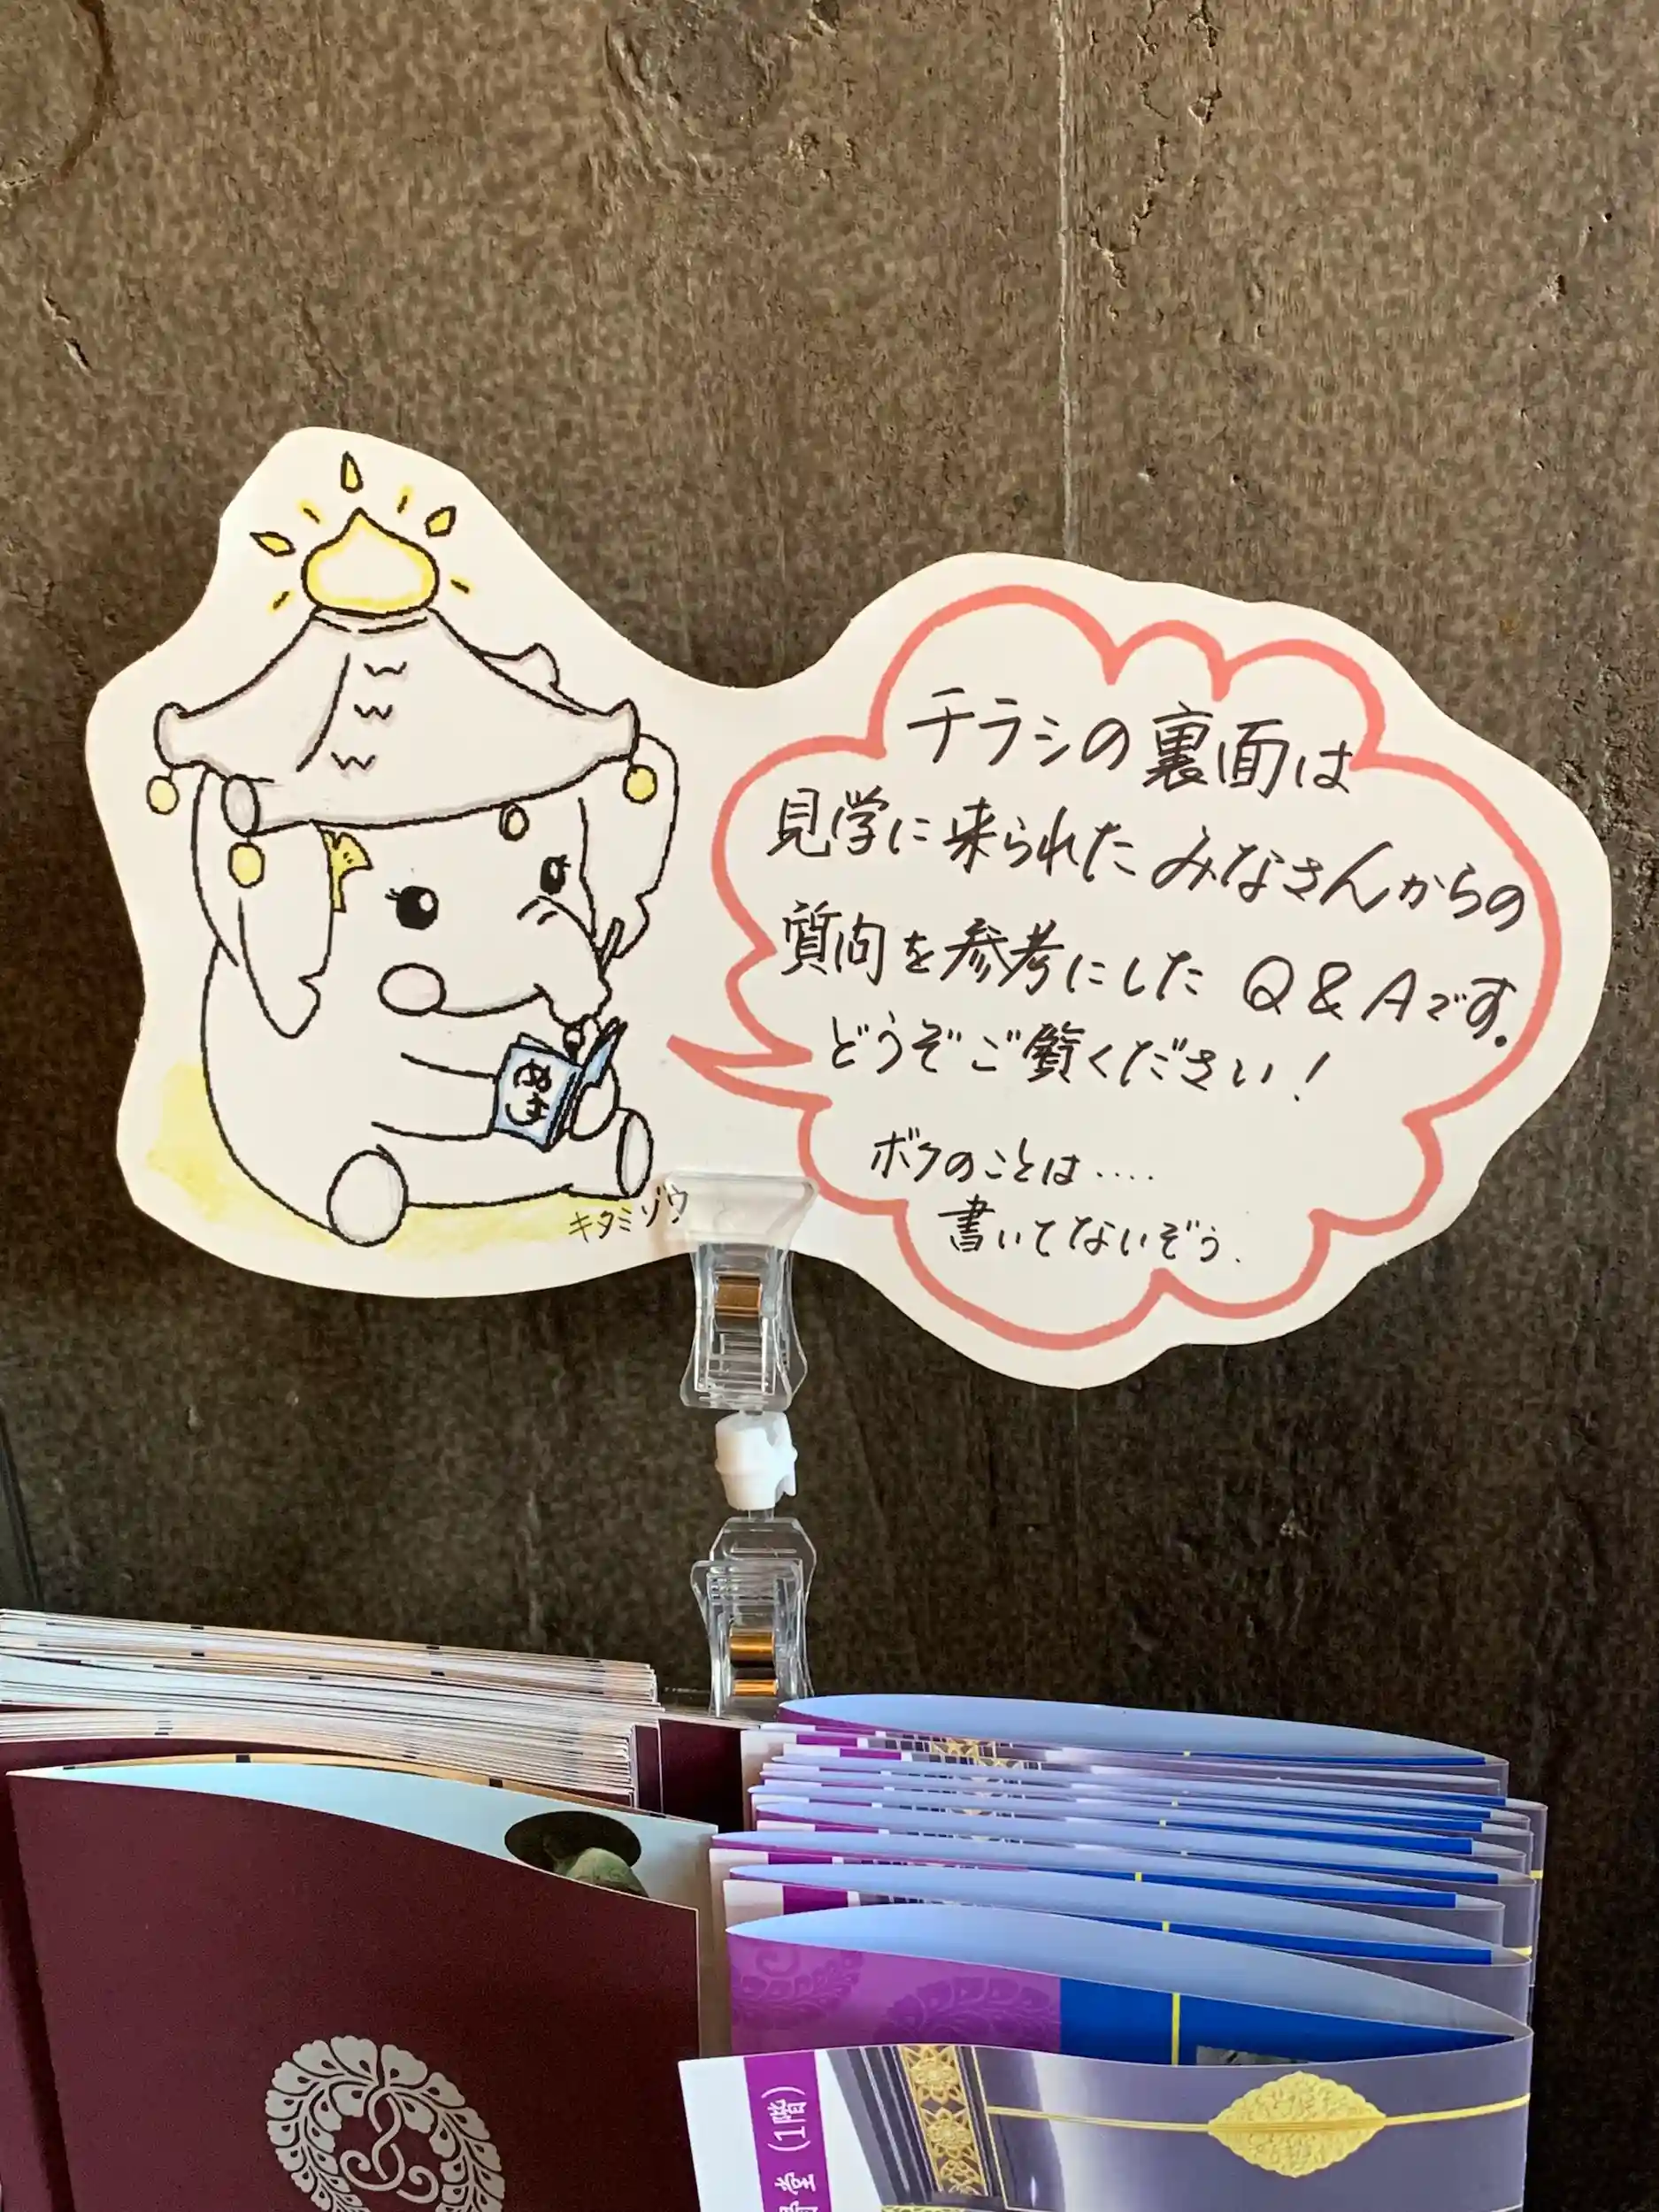 チラシの裏面は
見学に来られたみなさんからの
質問を参考にした Q&Aです。
どうぞご覧ください!
ボクのことは‥‥
書いてないぞぅ.
キタミゾウ
(1階)